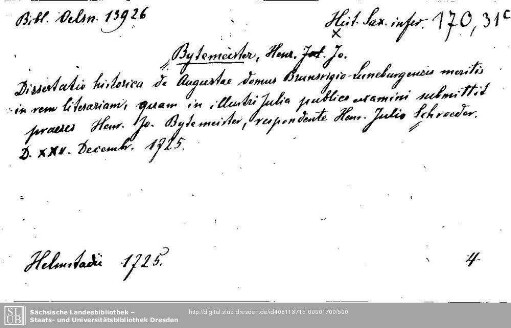 Bibl. Oelsn. 13926
Hist. Sax. infer. 170, 31c
x
Bytemeister, Henr. Jo.
Dissertatio historica de Augustae domus Brunsvigio-Luneburgensis meritis
in rem literariam, quam in illustri Julia publico examini submittit
praeses Henr. Jo. Bytemeister, respondente Henr. Julio Schroeder.
D. XXII. Decembr. 1725.
Helmstadii 1725. 4.
Sächsische Landesbibliothek –
Staats- und Universitätsbibliothek Dresden